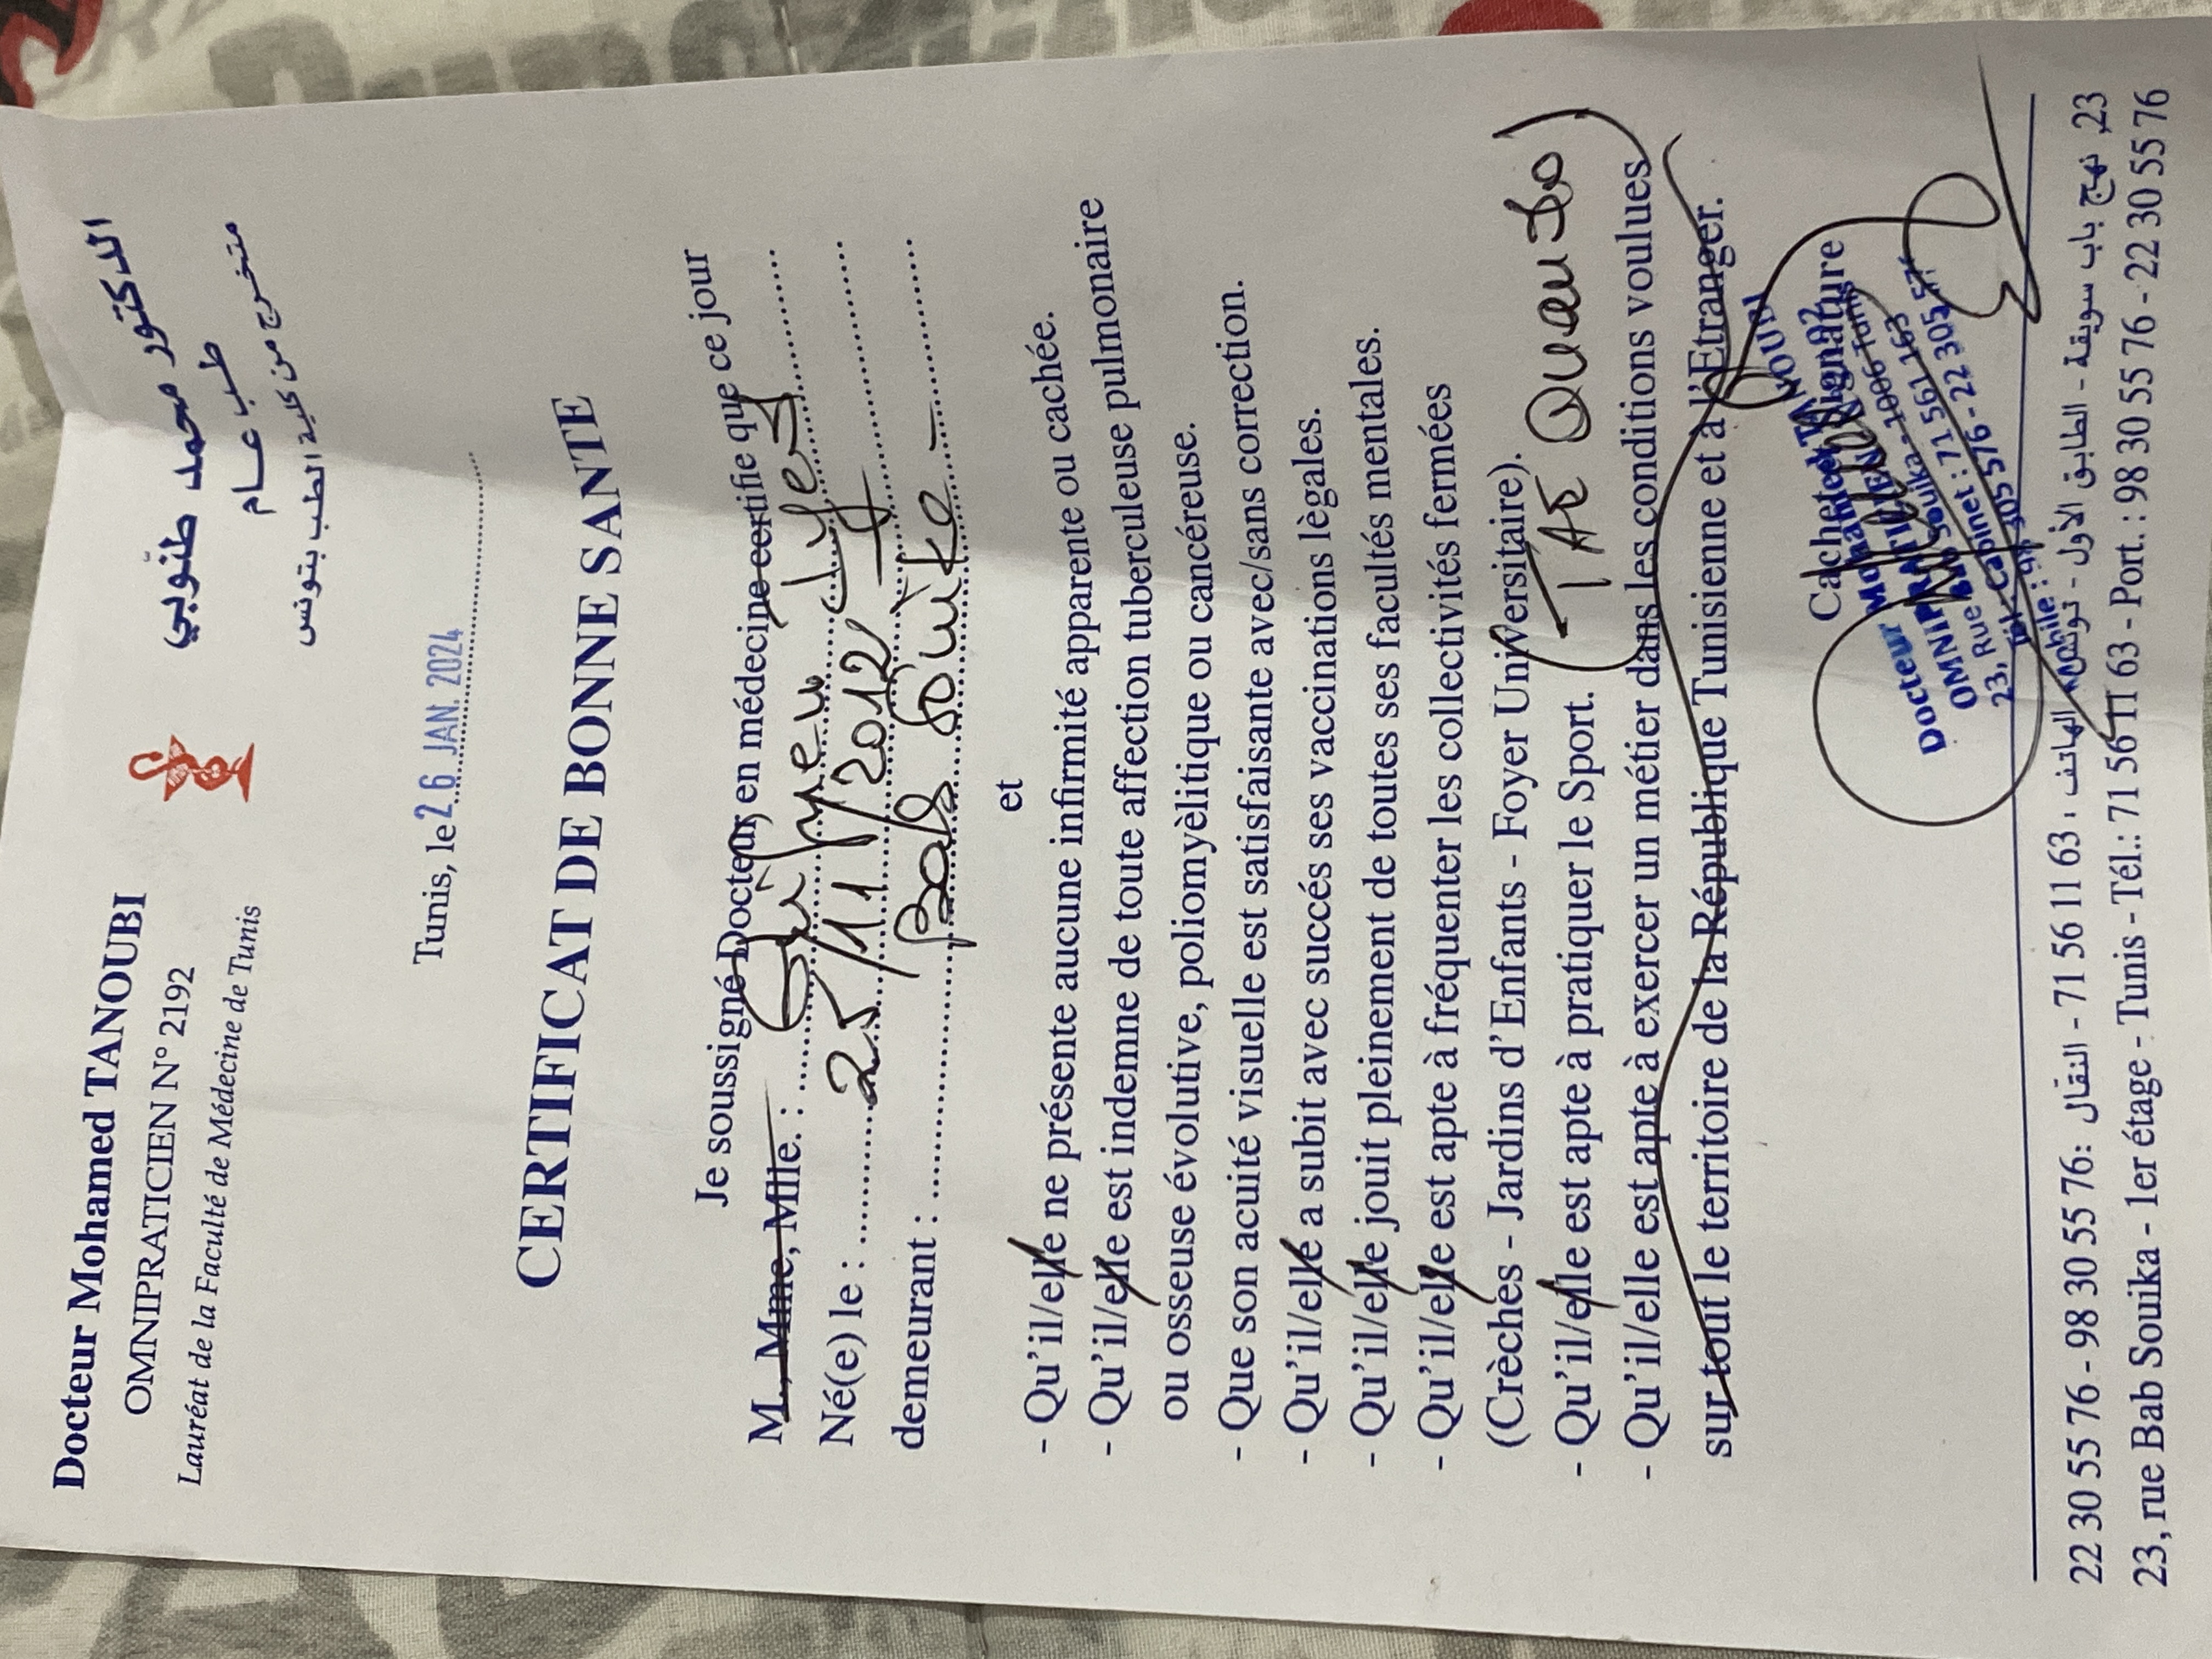 Docteur Mohamed TANOUBI
OMNIPRATICIEN N° 2192
Lauréat de la Faculté de Médecine de Tunis
الدكتور محمد طنّوبي
طب عام
متخرج من كلية الطب بتونس
Tunis, le 26 JAN. 2024
CERTIFICAT DE BONNE SANTE
Je soussigné Docteur en médecine certifie que ce jour
M., Mme, Mlle. :
Né(e) le : 25/11/2012
demeurant : Bab Souika
et
- Qu'il/elle ne présente aucune infirmité apparente ou cachée.
- Qu'il/elle est indemne de toute affection tuberculeuse pulmonaire
ou osseuse évolutive, poliomyèlitique ou cancéreuse.
- Que son acuité visuelle est satisfaisante avec/sans correction.
- Qu'il/elle a subit avec succés ses vaccinations lègales.
- Qu'il/elle jouit pleinement de toutes ses facultés mentales.
- Qu'il/elle est apte à fréquenter les collectivités fermées
(Crèches - Jardins d'Enfants - Foyer Universitaire).
- Qu'il/elle est apte à pratiquer le Sport. (TAE
- Qu'il/elle est apte à exercer un métier dans les conditions voulues
sur tout le territoire de la République Tunisienne et à l'Etranger.
Cachet et Signature
Docteur Mohamed TANOUBI
OMNIPRATICIEN
23, Rue Bab Souika - 1006 Tunis
Tél. Cabinet : 71 561 163
Mobile : 98 305 576 - 22 305 576
23, نهج باب سويقة - الطابق الأول - تونس - الهاتف : 71 56 11 63 - النقال : 98 30 55 76 - 22 30 55 76
23, rue Bab Souika - 1er étage - Tunis - Tél.: 71 56 11 63 - Port. : 98 30 55 76 - 22 30 55 76